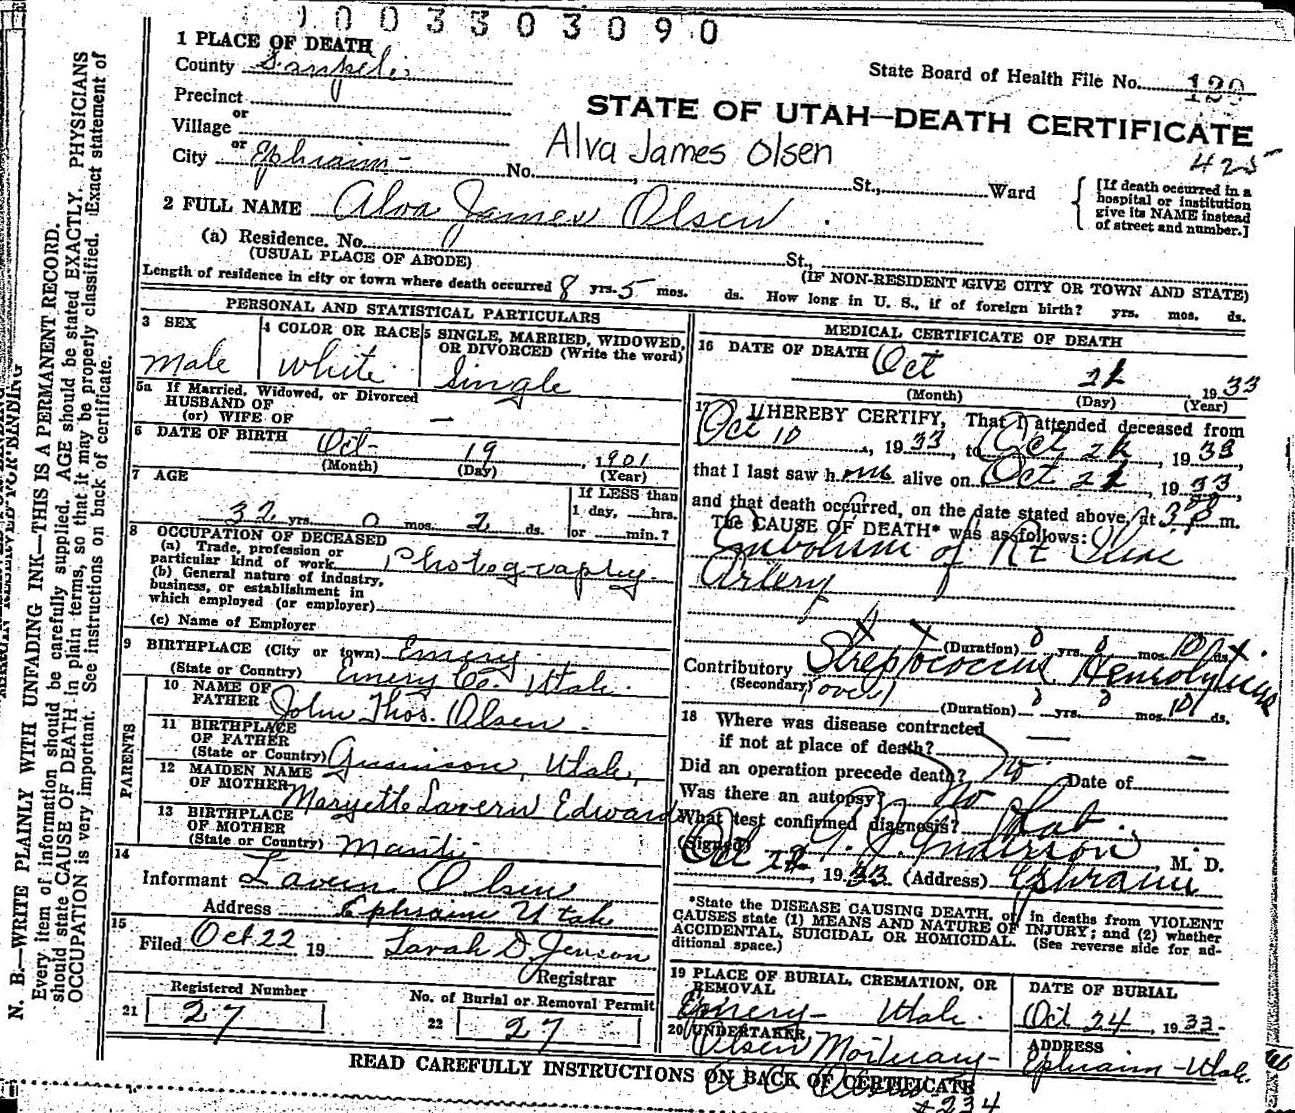 1003303090
1 PLACE OF DEATH
County Sanpete
State Board of Health File No. 129
Precinct
or
Village
STATE OF UTAH—DEATH CERTIFICATE
Alva James Olsen
425
or
City Ephraim No. St., Ward
[If death occurred in a hospital or institution give its NAME instead of street and number.]
2 FULL NAME Alva James Olsen
(a) Residence. No. St.,
(USUAL PLACE OF ABODE) (IF NON-RESIDENT GIVE CITY OR TOWN AND STATE)
Length of residence in city or town where death occurred 8 yrs. 5 mos. ds. How long in U. S., if of foreign birth? yrs. mos. ds.
PERSONAL AND STATISTICAL PARTICULARS
3 SEX
Male
4 COLOR OR RACE
White
5 SINGLE, MARRIED, WIDOWED, OR DIVORCED (Write the word)
Single
5a If Married, Widowed, or Divorced
HUSBAND OF
(or) WIFE OF —
6 DATE OF BIRTH Oct- 19, 1901
(Month) (Day) (Year)
7 AGE
32 yrs. 0 mos. 2 ds.
If LESS than
1 day, hrs.
or min.?
8 OCCUPATION OF DECEASED
(a) Trade, profession or
particular kind of work Photography
(b) General nature of industry,
business, or establishment in
which employed (or employer)
(c) Name of Employer
9 BIRTHPLACE (City or town) Emery
(State or Country) Emery Co. Utah.
PARENTS
10 NAME OF
FATHER John Thos. Olsen
11 BIRTHPLACE
OF FATHER
(State or Country) Gunnison, Utah,
12 MAIDEN NAME
OF MOTHER Maryette Lavern Edwards
13 BIRTHPLACE
OF MOTHER
(State or Country) Manti
14
Informant Lavern Olsen
Address Ephraim Utah
15
Filed Oct. 22 19 Sarah D. Jenson
Registrar
Registered Number
21 27
No. of Burial or Removal Permit
22 27
MEDICAL CERTIFICATE OF DEATH
16 DATE OF DEATH Oct 1933
(Month) (Day) (Year)
17 I HEREBY CERTIFY, That I attended deceased from
Oct 10, 1933, to Oct, 1933,
that I last saw him alive on Oct, 1933,
and that death occurred, on the date stated above, at 3 P m.
The CAUSE OF DEATH* was as follows:
Embolism of Rt Iliac
Artery
(Duration) 0 yrs. 0 mos. 10 ds.
Contributory Streptococcus
(Secondary) (over)
(Duration) 0 yrs. 0 mos. 10 ds.
18 Where was disease contracted
if not at place of death?
Did an operation precede death? No Date of
Was there an autopsy? No
What test confirmed diagnosis? Lab.
(Signed) Anderson, M. D.
Oct, 1933 (Address) Ephraim
*State the DISEASE CAUSING DEATH, or in deaths from VIOLENT
CAUSES state (1) MEANS AND NATURE OF INJURY; and (2) whether
ACCIDENTAL, SUICIDAL OR HOMICIDAL. (See reverse side for ad-
ditional space.)
19 PLACE OF BURIAL, CREMATION, OR
REMOVAL
Emery- Utah.
DATE OF BURIAL
Oct 24, 1933-
20 UNDERTAKER
Olsen Mortuary-
ADDRESS
Ephraim-Utah.
READ CAREFULLY INSTRUCTIONS ON BACK OF CERTIFICATE
#234
N. B.—WRITE PLAINLY WITH UNFADING INK—THIS IS A PERMANENT RECORD.
Every item of information should be carefully supplied. AGE should be stated EXACTLY. PHYSICIANS
should state CAUSE OF DEATH in plain terms, so that it may be properly classified. Exact statement of
OCCUPATION is very important. See instructions on back of certificate.
MARGIN RESERVED FOR BINDING